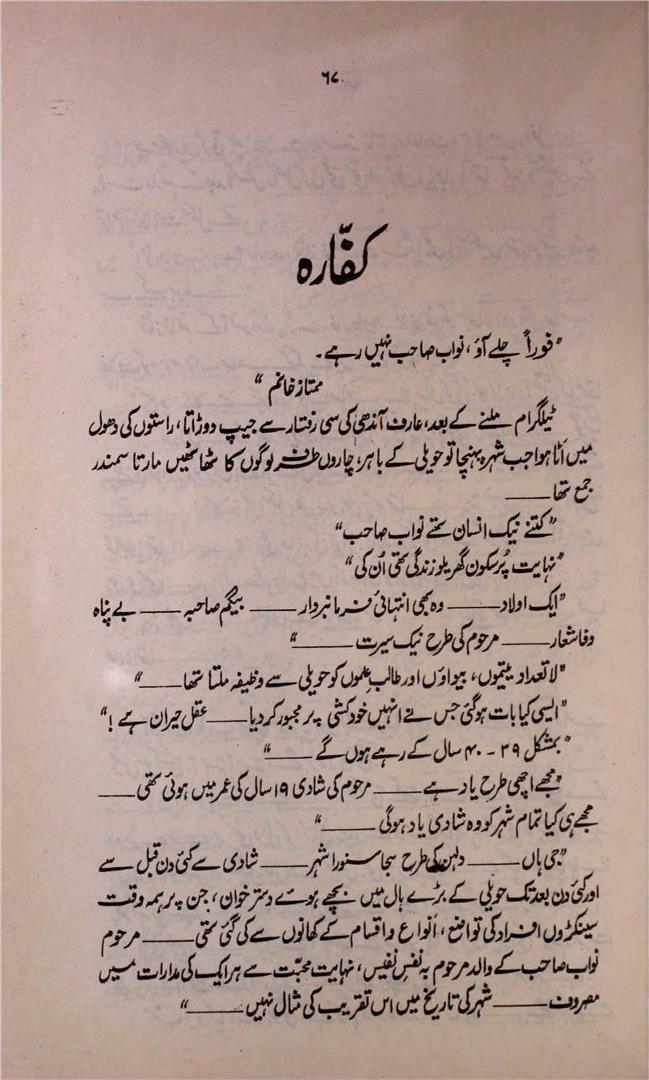 ۶۷
کفّارہ
"فوراً چلے آؤ، نواب صاحب نہیں رہے۔
ممتاز خانم"
ٹیلگرام ملنے کے بعد، عارف آندھی کی سی رفتار سے جیپ دوڑاتا، راستوں کی دھول
میں اَٹا ہوا جب شہر پہنچا تو حویلی کے باہر، چاروں طرف لوگوں کا ٹھاٹھیں مارتا سمندر
جمع تھا ——
"کتنے نیک انسان تھے نواب صاحب"
"نہایت پُرسکون گھریلو زندگی تھی اُن کی"
"ایک اولاد —— وہ بھی انتہائی فرمانبردار —— بیگم صاحبہ —— بے پناہ
وفا شعار —— مرحوم کی طرح نیک سیرت ——"
"لاتعداد یتیموں، بیواؤں اور طالب علموں کو حویلی سے وظیفہ ملتا تھا ——"
"ایسی کیا بات ہو گئی جس نے انہیں خودکشی پر مجبور کر دیا —— عقل حیران ہے!"
"بمشکل ۳۹ - ۴۰ سال کے رہے ہوں گے ——"
"مجھے اچھی طرح یاد ہے —— مرحوم کی شادی ۱۹ سال کی عمر میں ہوئی تھی ——
مجھے ہی کیا تمام شہر کو وہ شادی یاد ہوگی ——"
"جی ہاں —— دلہن کی طرح سجا سنورا شہر —— شادی سے کئی دن قبل سے
اور کئی دن بعد تک حویلی کے بڑے ہال میں بچھے ہوئے دسترخوان، جن پر ہمہ وقت
سینکڑوں افراد کی تواضع، انواع و اقسام کے کھانوں سے کی گئی تھی —— مرحوم
نواب صاحب کے والد مرحوم بہ نفسِ نفیس، نہایت محبّت سے ہر ایک کی مدارات میں
مصروف —— شہر کی تاریخ میں اس تقریب کی مثال نہیں ——"